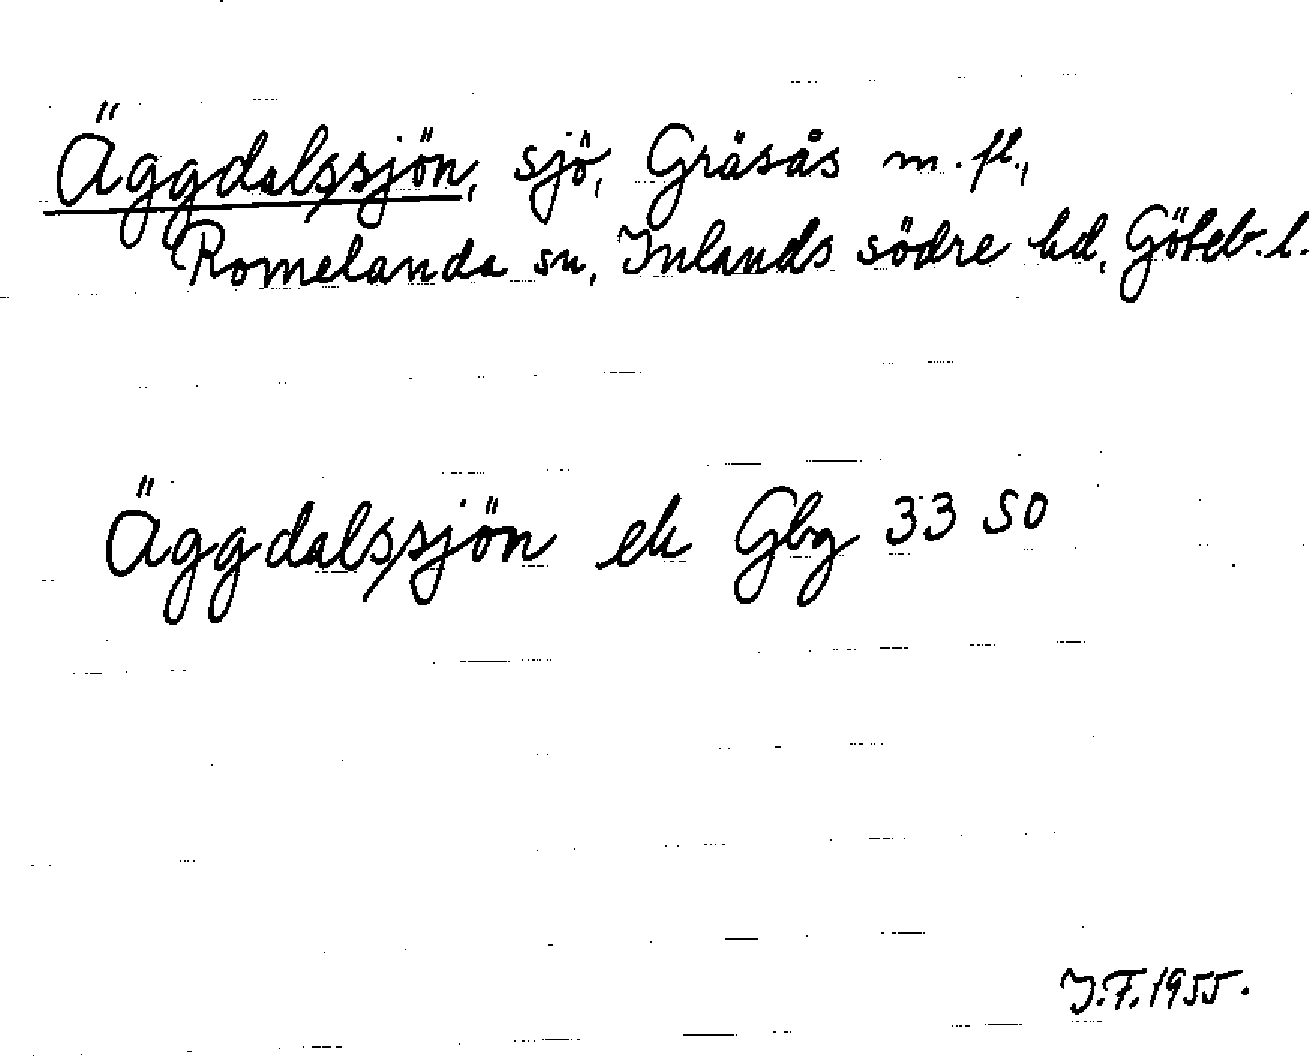 Äggdalssjön, sjö, Gräsås m.fl.,
Romelanda sn, Inlands södre hd, Göteb.l.
Äggdalssjön ek Gbg 33 SO
I.F.1955.